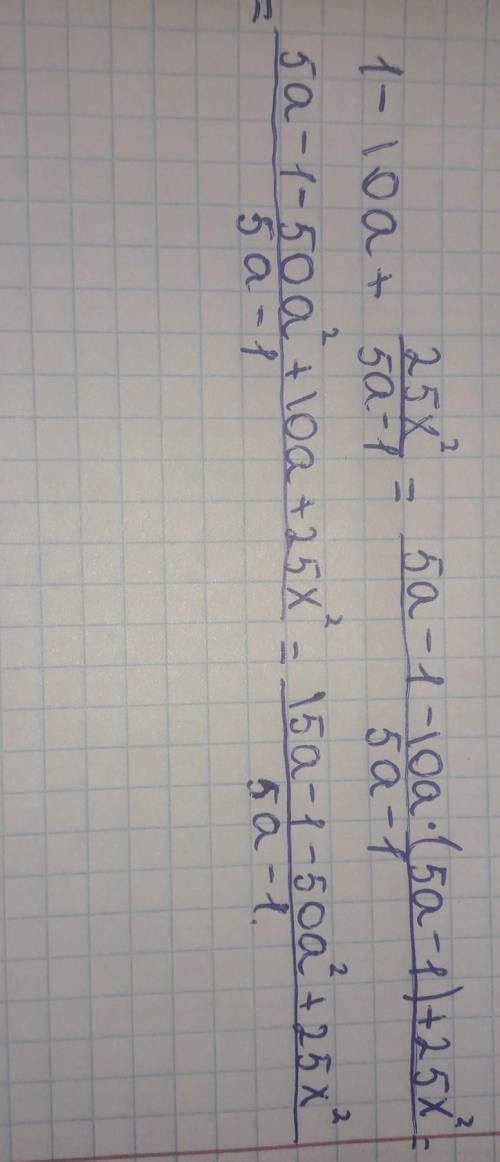 1 - 10a + 25x²/(5a - 1) = (5a - 1 - 10a·(5a - 1) + 25x²)/(5a - 1) =
= (5a - 1 - 50a² + 10a + 25x²)/(5a - 1) = (15a - 1 - 50a² + 25x²)/(5a - 1).